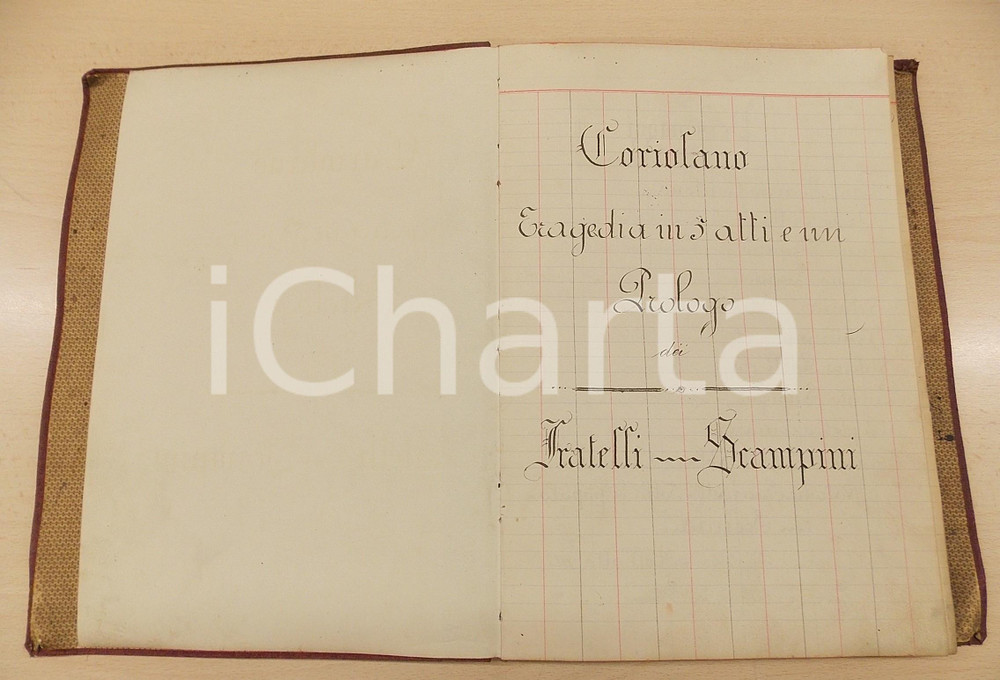 Coriolano
Tragedia in 5 atti e un
Prologo
dei
Fratelli Scampini
iCharta